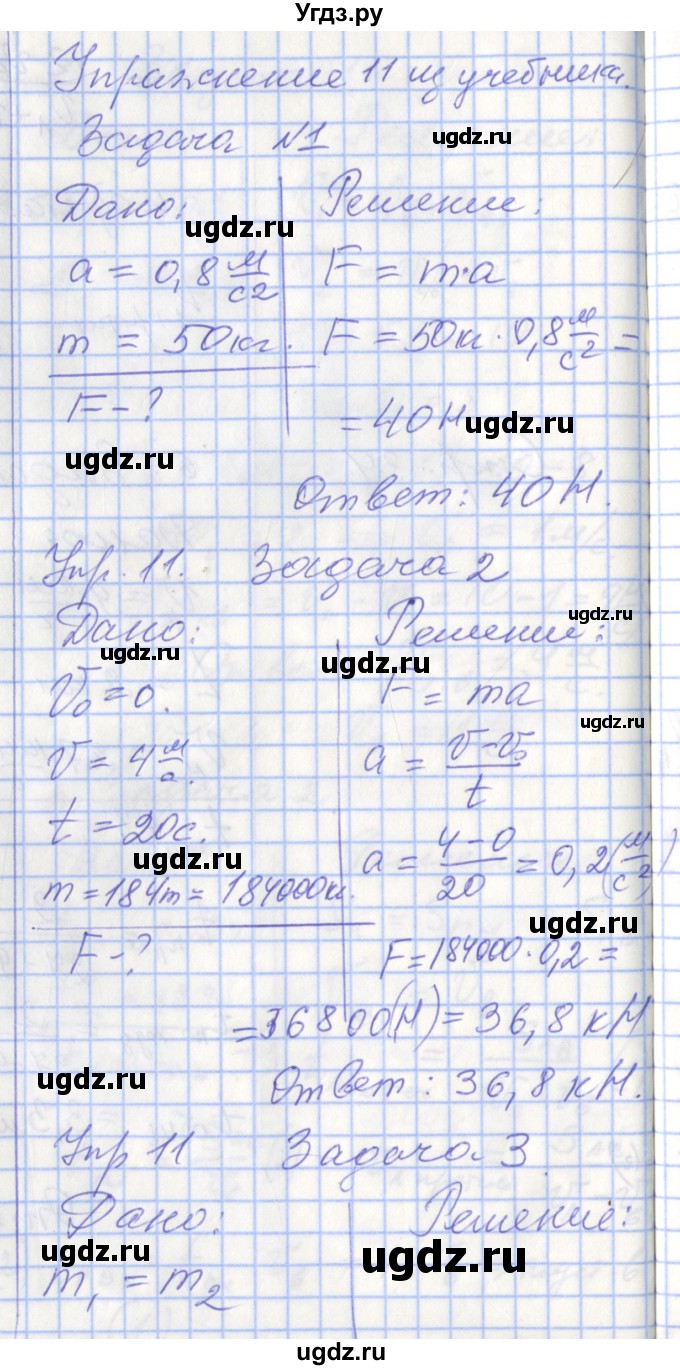 Угдз.ру
Упражнение 11 из учебника.
Задача №1
ugdz.ru
Дано: Решение:
ugdz.ru
a = 0,8 м/с2 F = m·a
m = 50кг. F = 50кг · 0,8 м/с2 =
F - ? = 40 Н
ugdz.ru
ugdz.ru
Ответ: 40 Н.
Упр. 11. Задача 2
ugdz.ru
Дано: Решение:
ugdz.ru
ugdz.ru
V0 = 0. F = ma
ugdz.ru
V = 4 м/с. a = V-V0/t
t = 20с.
ugdz.ru
a = 4-0/20 = 0,2 (м/с2)
m = 184т = 184000кг.
ugdz.ru
F - ? F = 184000 · 0,2 =
= 36800(Н) = 36,8 кН
ugdz.ru
Ответ: 36,8 кН.
Упр 11 Задача 3
Дано: Решение:
ugdz.ru
ugdz.ru
m1 = m2
ugdz.ru